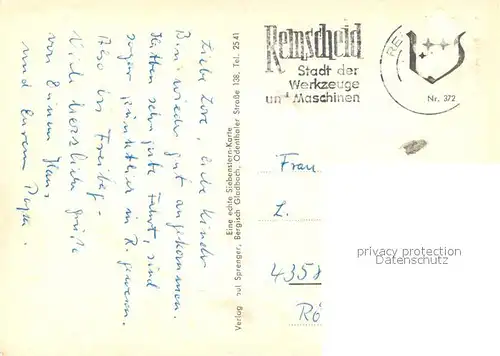 Liebe Lore, liebe Kinder
Bin wieder gut angekommen.
Hatten sehr gute Fahrt, sind
sogar pünktlich in R. gewesen.
Also bis Freitag.
Viele herzliche Grüße
von Eurem Hans
und Eurem Papa.
Verlag Paul Sprenger, Bergisch Gladbach, Odenthaler Straße 138, Tel. 2541
Eine echte Siebenstern-Karte
Remscheid
Stadt der
Werkzeuge
und Maschinen
RE
Nr. 372
Frau
L.
4358
Rö
privacy protection
Datenschutz